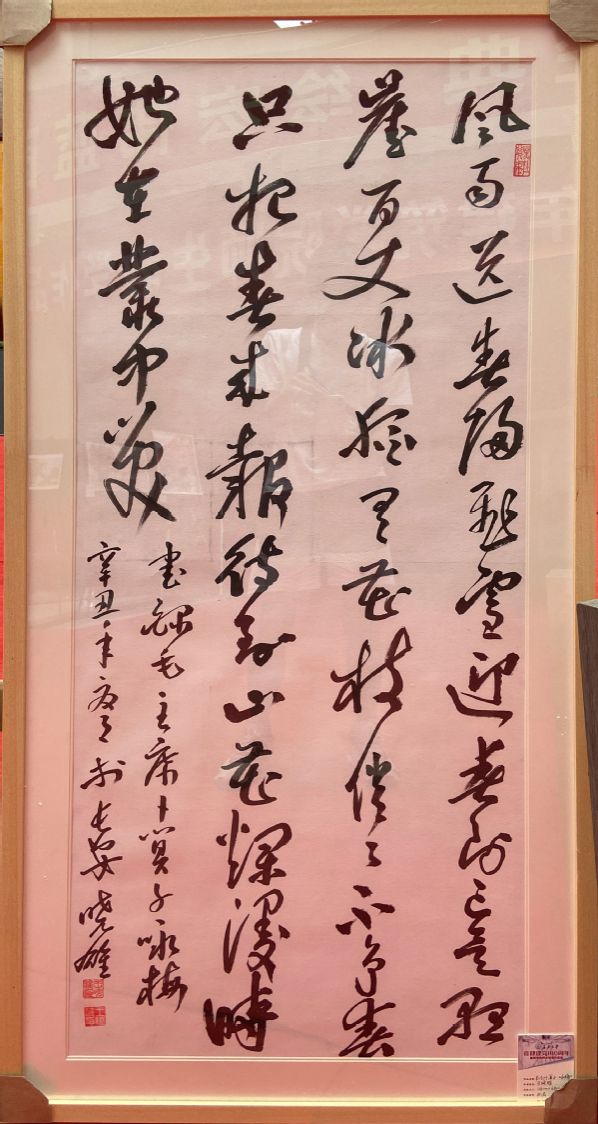 风雨送春归飛雪迎春到已是悬
崖百丈冰犹有花枝俏〻不争春
只把春来報待到山花爛漫時
她在叢中笑
书録毛主席卜算子咏梅
辛丑年夏月於长安晓雄